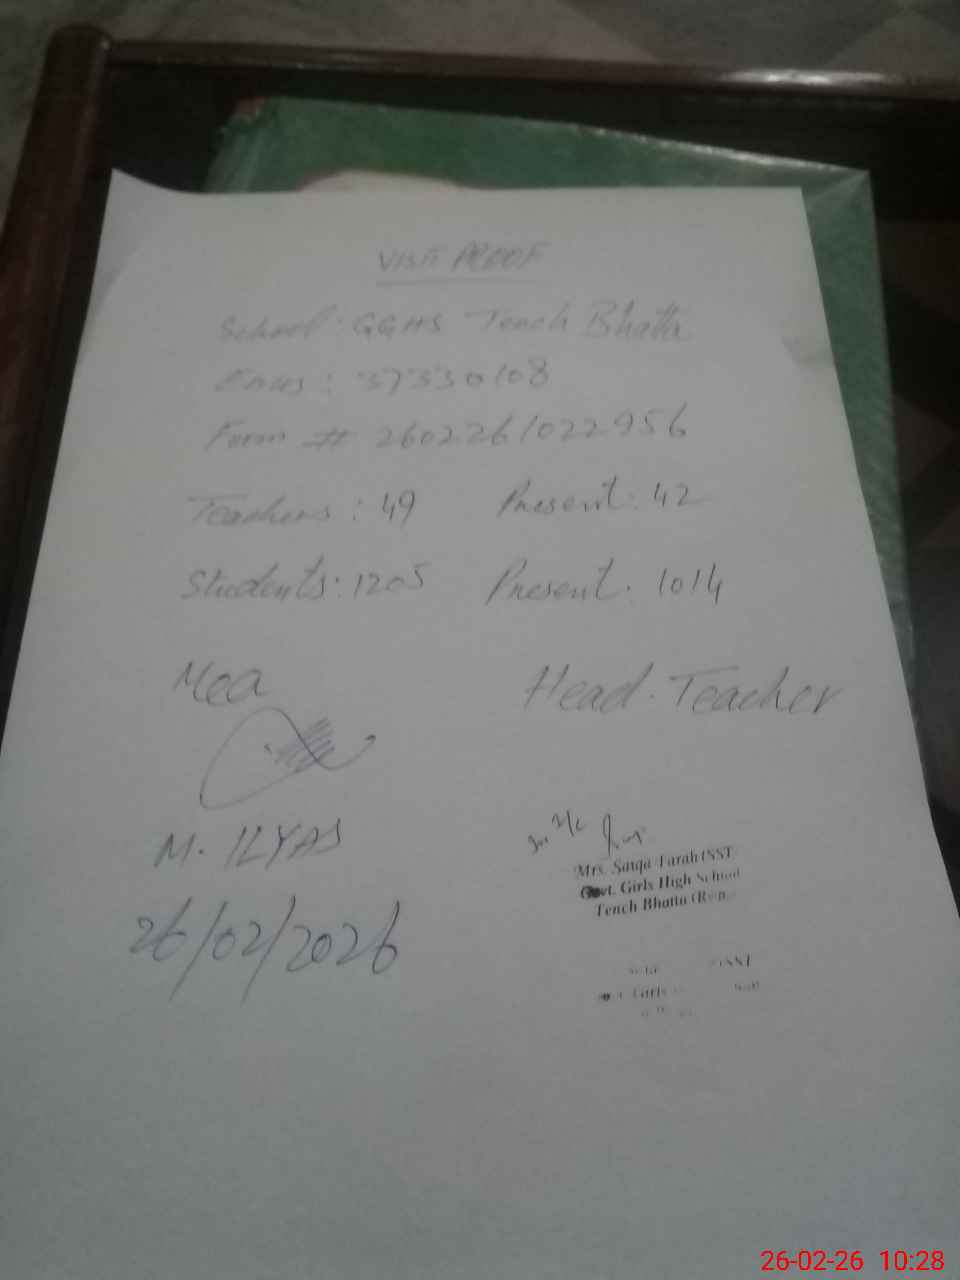 VISIT PROOF
School: GGHS Tench Bhatta
Emis: 37330108
Form # 260226/022956
Teachers: 49 Present: 42
Students: 1205 Present: 1014
Mea
Head Teacher
M. ILYAS
26/02/2026
Mrs. Farah (SST
Govt. Girls High School
Tench Bhatta
SST
Girls
26-02-26 10:28